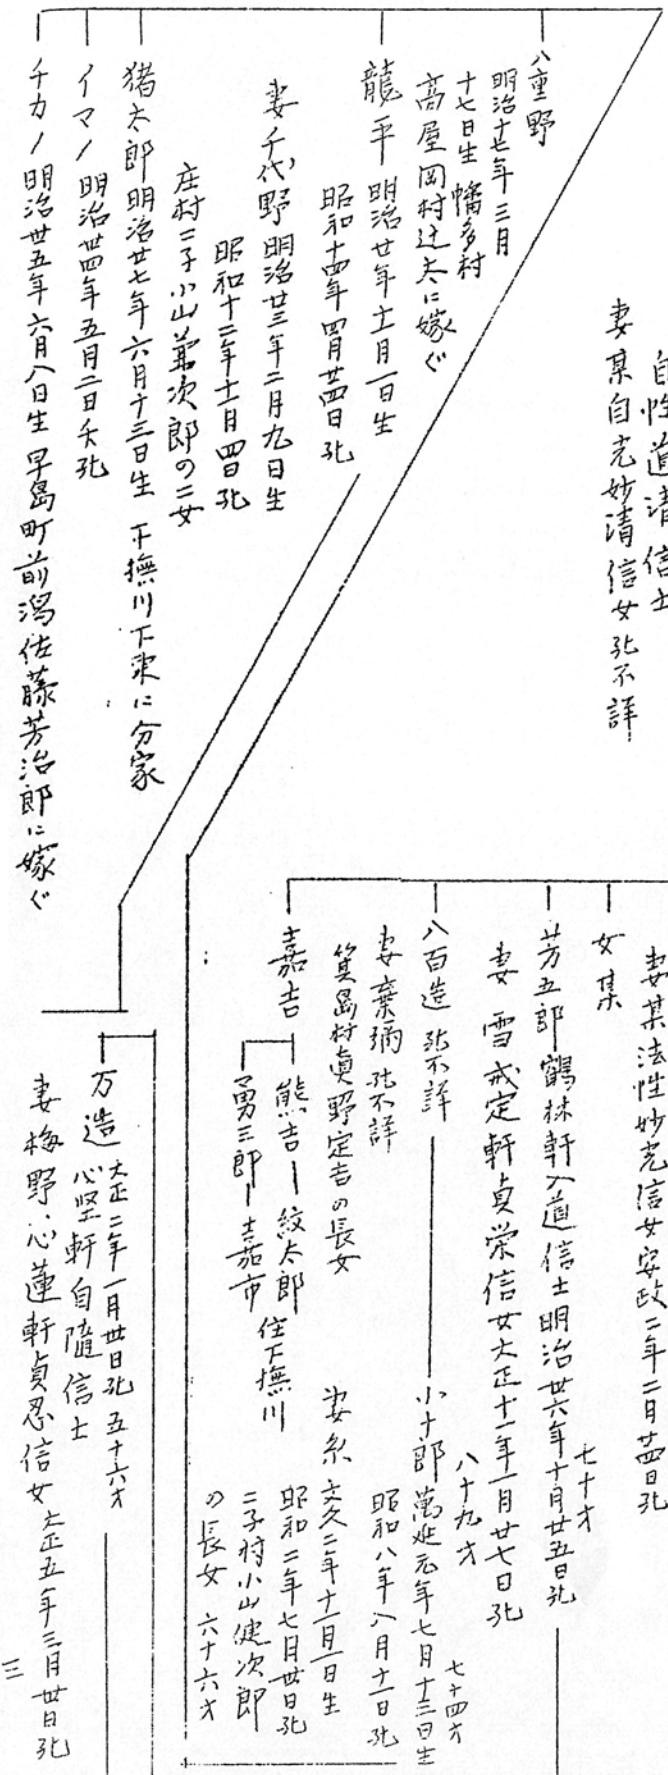 自性道清信士
妻某自光妙清信女死不詳
八重野
明治十七年三月
十七日生 幡多村
高屋岡村辻太に嫁ぐ
龍平 明治廿年十一月一日生
昭和十四年四月廿四日死
妻千代野 明治廿三年二月九日生
昭和十二年十一月四日死
庄村二子小山兼次郎の二女
猪太郎 明治廿七年六月十三日生 下撫川下東に分家
イマノ 明治卅四年五月二日夭死
チカノ 明治卅五年六月八日生 早島町前潟佐藤芳治郎に嫁ぐ
妻某法性妙光信女安政二年二月廿四日死
女某
芳五郎 鶴林軒入道信士明治卅六年十月廿五日死
七十才
妻 雪 戒定軒貞栄信女大正十一年一月廿七日死
八十九才
八百造 死不詳
小十郎 萬延元年七月十三日生
七十四才
昭和八年八月十一日死
妻棄弥死不詳
箕島村真野定吉の長女
妻糸 文久二年十一月一日生
昭和二年七月卅日死
二子村小山健次郎
の長女 六十六才
嘉吉
熊吉 紋太郎 住下撫川
勇三郎 嘉市
万造 大正二年一月卅日死 五十六才
心堅軒自随信士
妻梅野 心蓮軒貞忍信女 大正五年三月卅日死
三